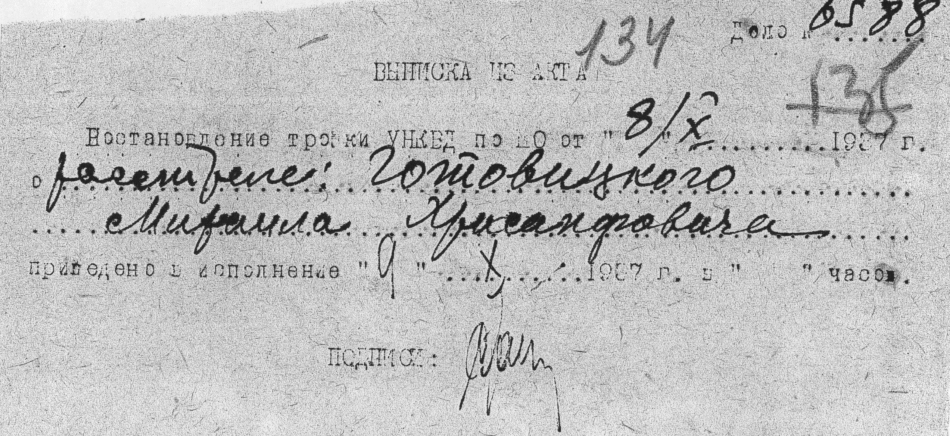 Дело № 6588
134
ВЫПИСКА ИЗ АКТА
135
Постановление тройки УНКВД по МО от "8/X" ......... 1937 г.
о расстреле: Готовицкого
Михаила Хрисанфовича
приведено в исполнение "9" X 1937 г. в " " часов.
ПОДПИСИ: